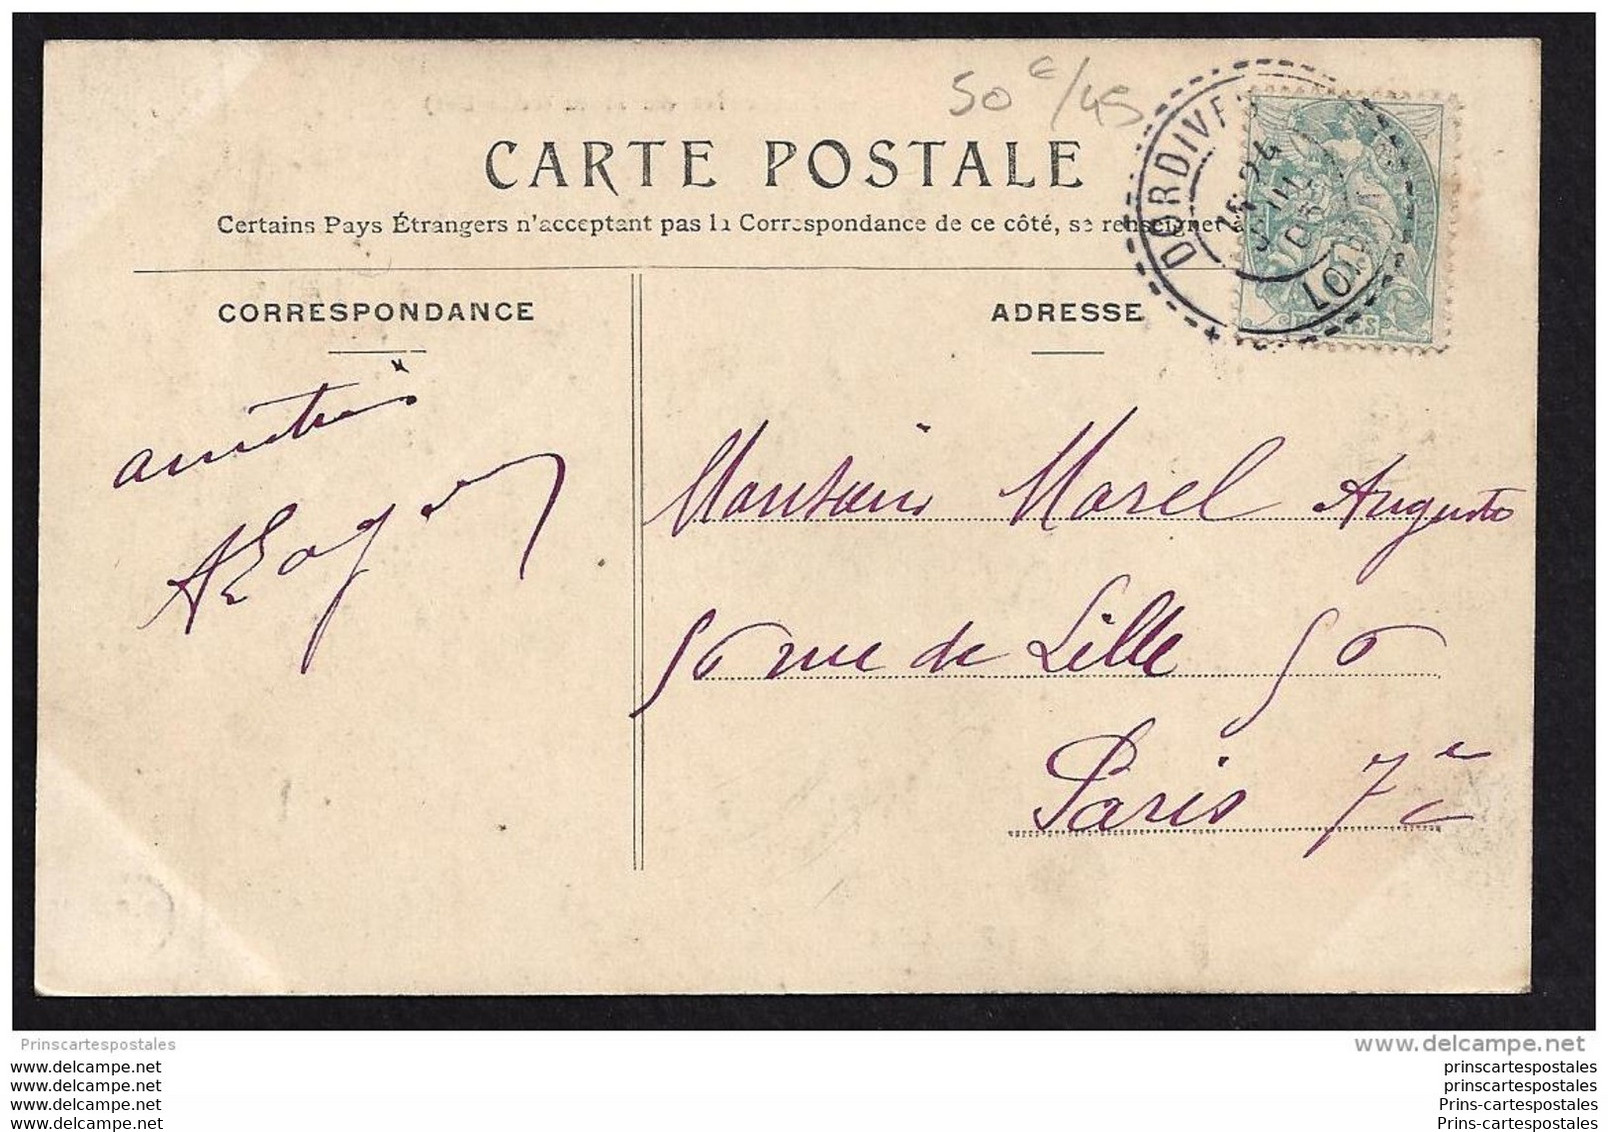 50 €/45
CARTE POSTALE
Certains Pays Étrangers n'acceptent pas la Correspondance de ce côté, se renseigner à
DORDIVES
LOIRET
POSTES
CORRESPONDANCE
ADRESSE
amitiés
Monsieur Morel Auguste
56 rue de Lille 56
Paris 7e
Prinscartespostales
www.delcampe.net
www.delcampe.net
www.delcampe.net
www.delcampe.net
www.delcampe.net
prinscartespostales
prinscartespostales
Prins-cartespostales
Prins-cartespostales